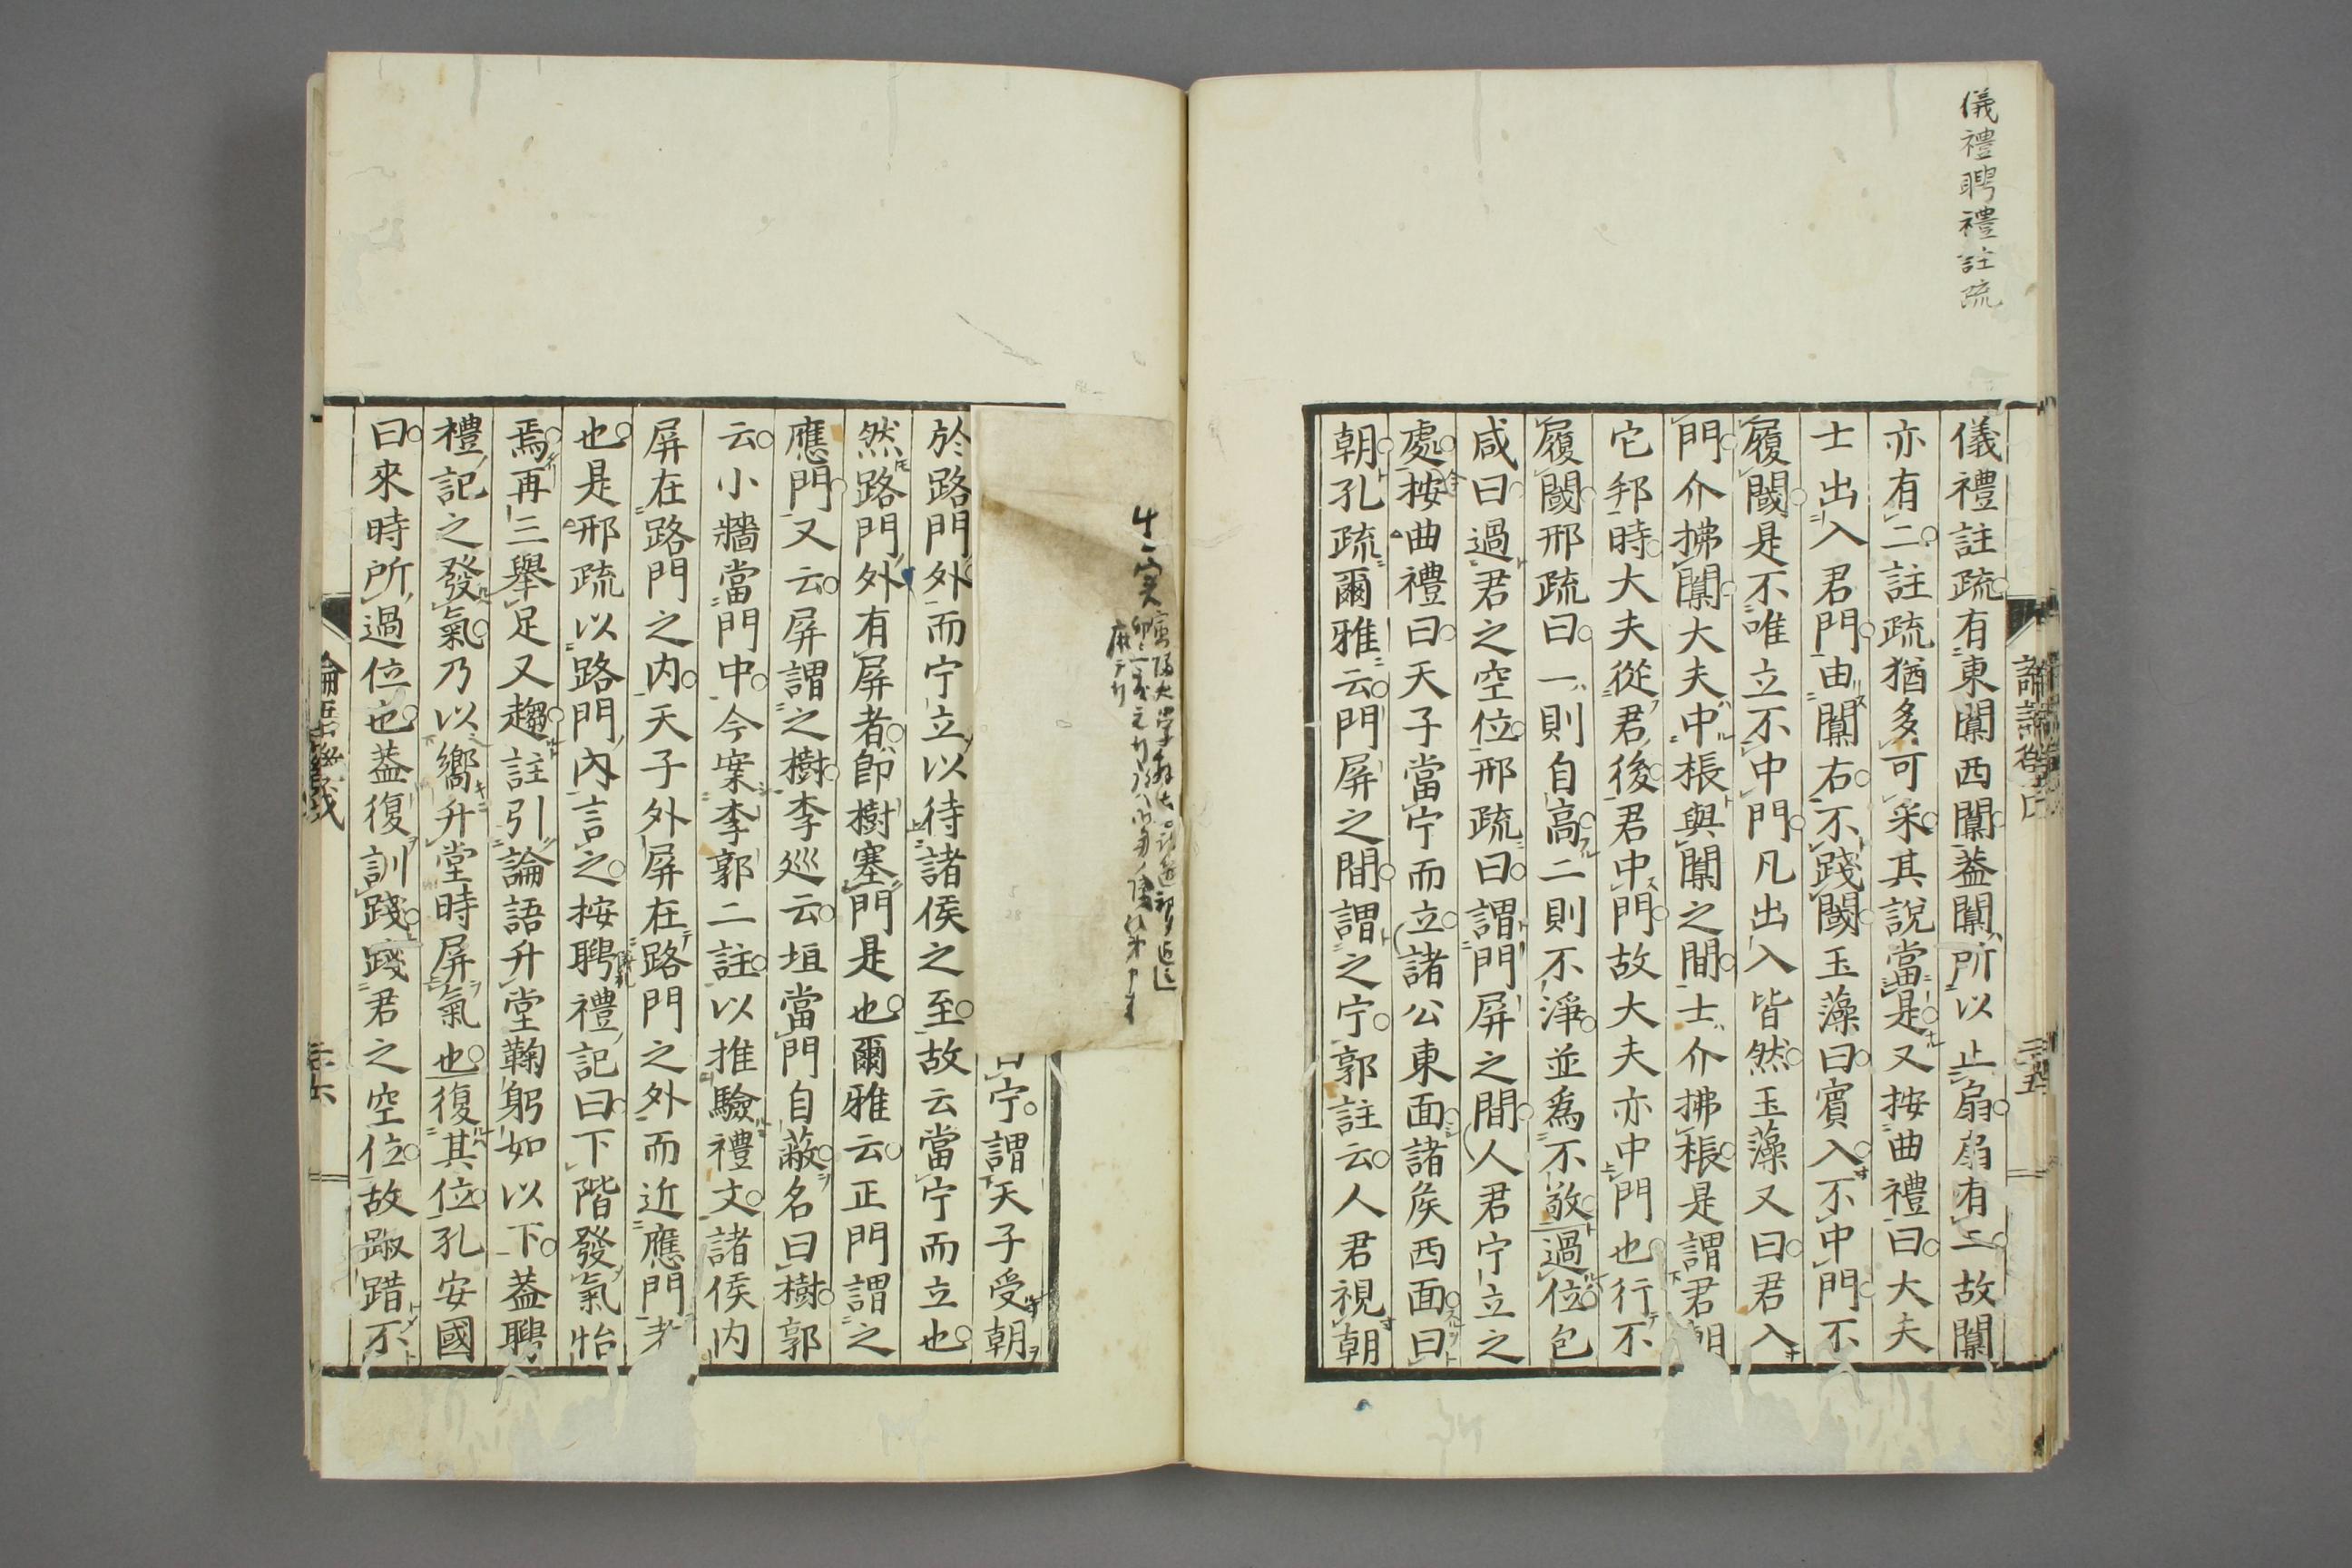 儀禮聘禮註疏
儀禮註疏有東闑西闑蓋闑所以止扇扇有二故闑
亦有二註疏猶多可采其說當是又按曲禮曰大夫
士出入君門由闑右不踐閾玉藻曰賓入不中門不
履閾是不唯立不中門凡出入皆然玉藻又曰君入
門介拂闑大夫中棖與闑之間士介拂棖是謂君朝
它邦時大夫從君後君中門故大夫亦中門也行不
履閾邢疏曰一則自高二則不淨並為不敬過位包
咸曰過君之空位邢疏曰謂門屏之間人君宁立之
處按曲禮曰天子當宁而立諸公東面諸矦西面曰
朝孔疏爾雅云門屏之間謂之宁郭註云人君視朝
宁謂天子受朝
於路門外而宁立以待諸侯之至故云當宁而立也
然路門外有屏者卽樹塞門是也爾雅云正門謂之
應門又云屏謂之樹李巡云垣當門自蔽名曰樹郭
云小牆當門中今案李郭二註以推驗禮文諸侯内
屏在路門之内天子外屏在路門之外而近應門者
也是邢疏以路門內言之按聘禮記曰下階發氣怡
焉再三舉足又趨註引論語升堂鞠躬如以下蓋聘
禮記之發氣乃以嚮升堂時屏氣也復其位孔安國
曰來時所過位也蓋復訓踐踐君之空位故踧踖不